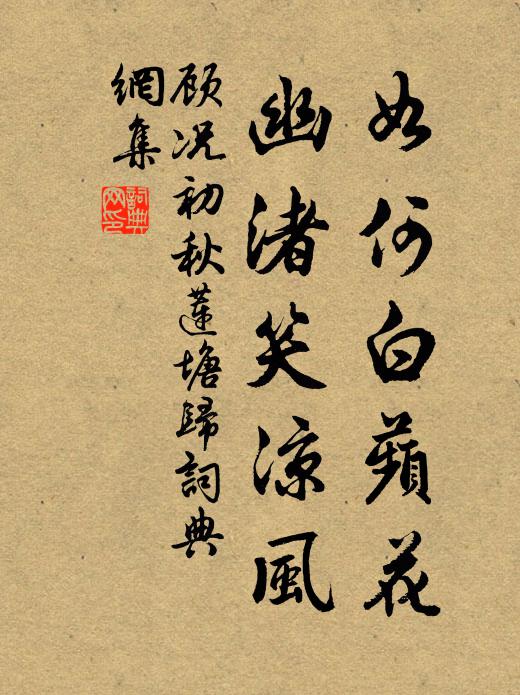 如何白蘋花
幽渚笑涼風
顾况初秋蓮塘歸詞典
網集
詞典
网印